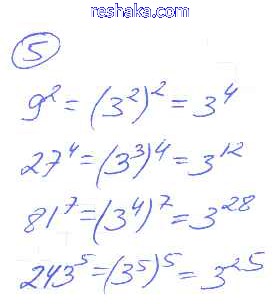 reshak.com
5
9² = (3²)² = 3⁴
27⁴ = (3³)⁴ = 3¹²
81⁷ = (3⁴)⁷ = 3²⁸
243⁵ = (3⁵)⁵ = 3²⁵